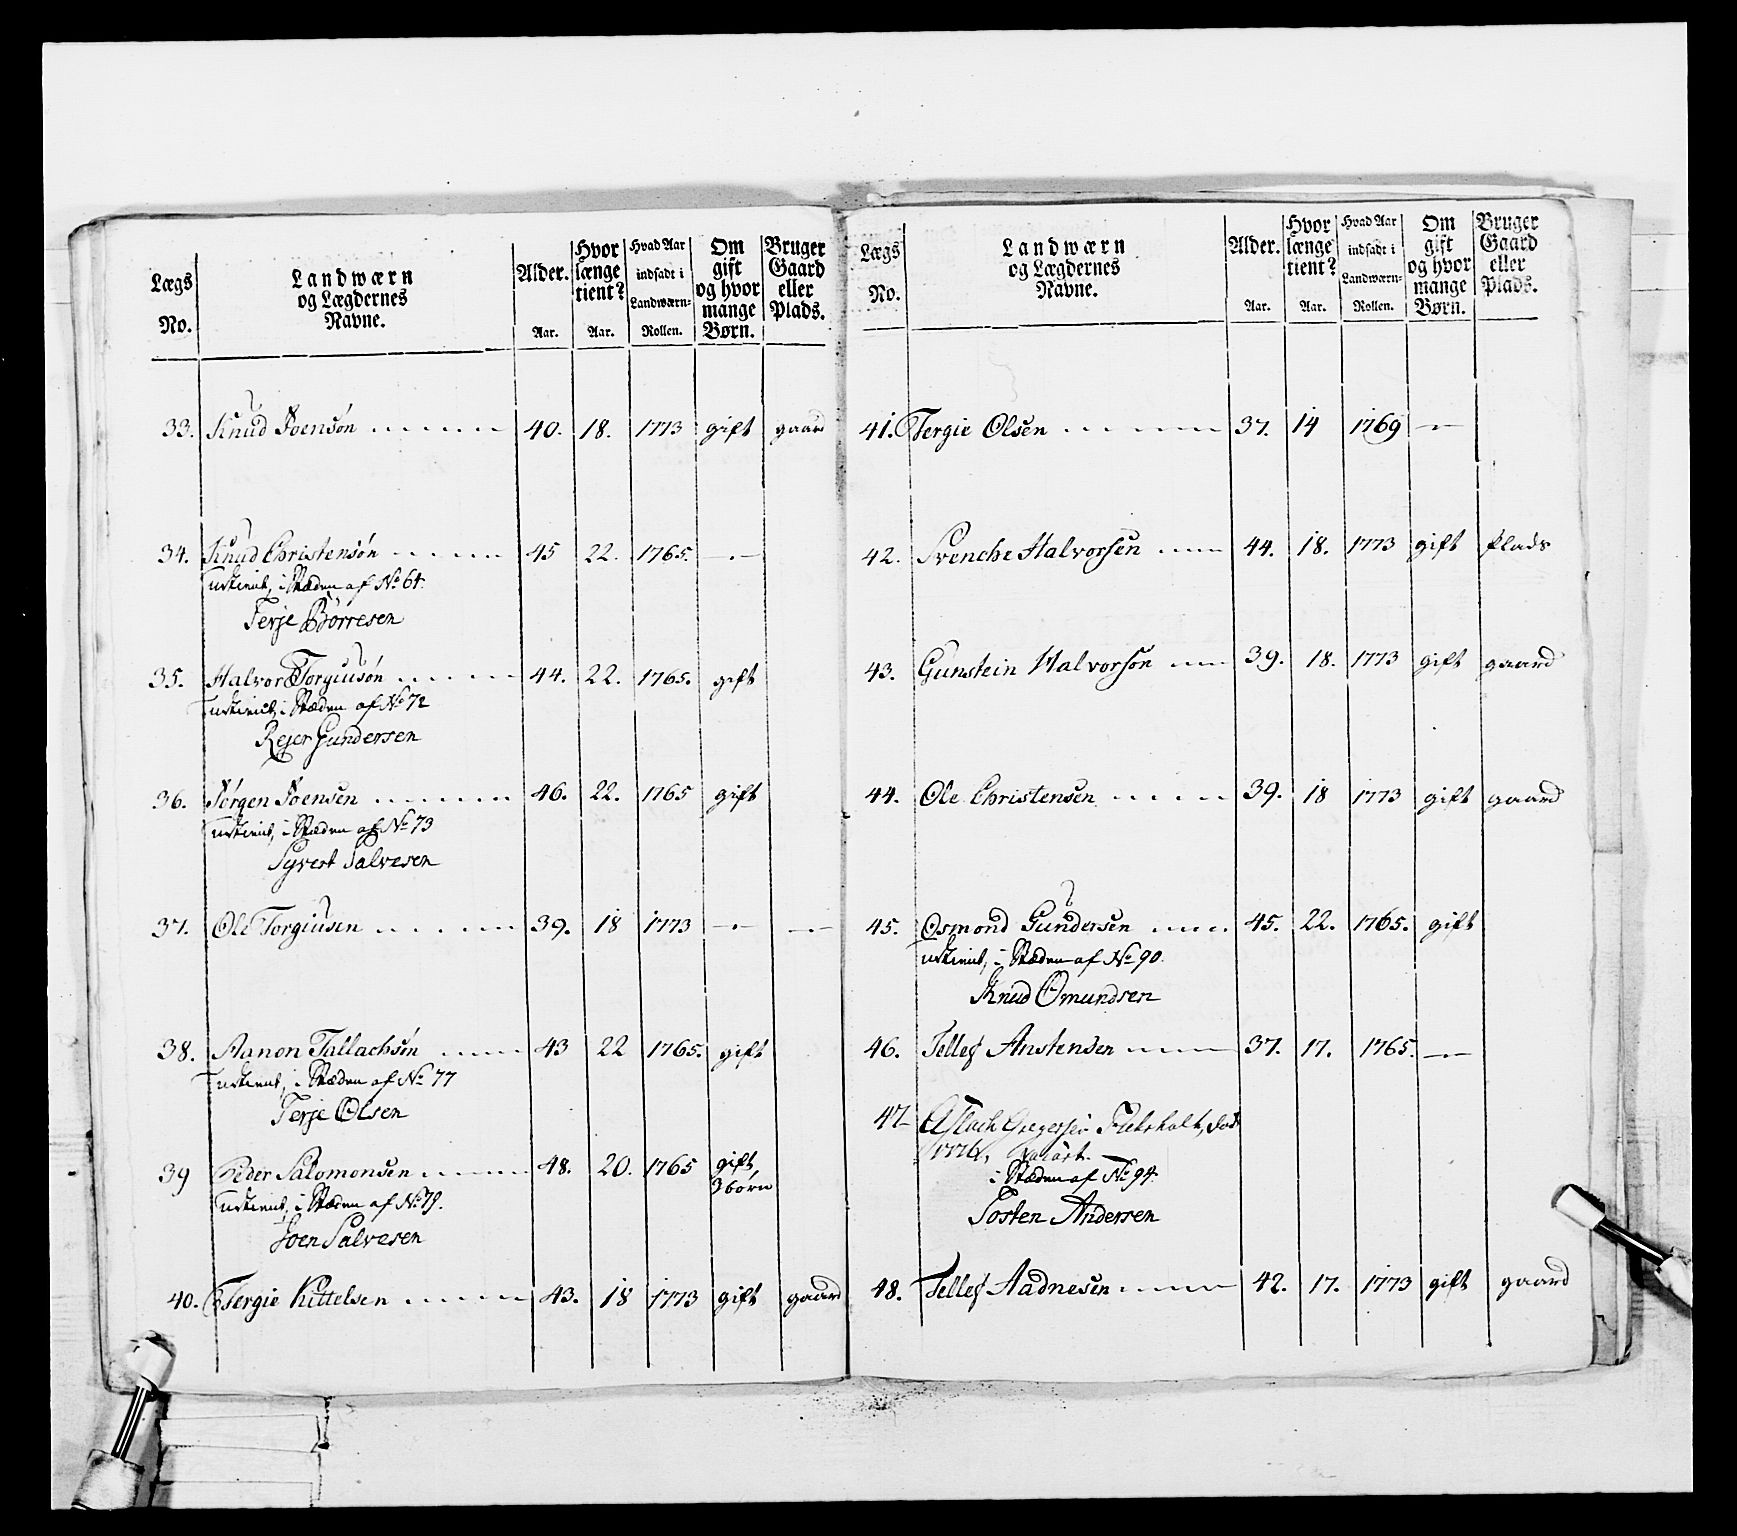 Lægs No. Landwærn og Lægdernes Navne. Alder. Aar. Hvor længe tient? Aar. Hvad Aar indsadt i Landwærn-Rollen. Om gift og hvor mange Børn. Bruger Gaard eller Plads.
33. Knud Joensøn 40. 18. 1773 gift gaard
34. Knud Christensøn 45 22. 1765. —„—
udtient, i Stæden af No 64.
Terje Börresen
35. Halvor Torgiusøn 44. 22. 1765. gift
udtient, i Stæden af No 72
Rejer Gundersen
36. Jørgen Joensen 46. 22. 1765 gift
udtient, i Stæden af No 73
Syvert Salvesen
37. Ole Torgiusen 39. 18 1773 —„— —„—
38. Aanon Tallachsøn 43 22 1765. gift
udtient, i Stæden af No 77
Terje Olsen
39 Peder Salomonsen 48. 20. 1765 gift, 3 børn
udtient, i Stæden af No 79.
Joen Salvesen
40. Tergie Kittelsen 43. 18 1773 gift gaard
Lægs No. Landwærn og Lægdernes Navne. Alder. Aar. Hvor længe tient? Aar. Hvad Aar indsadt i Landwærn-Rollen. Om gift og hvor mange Børn. Bruger Gaard eller Plads.
41. Tergie Olsen 37. 14 1769 —„—
42. Svenche Halvorsen 44. 18. 1773 gift plads
43. Gunstein Halvorsøn 39. 18. 1773 gift gaard
44. Ole Christensen 39. 18 1773 gift gaard
45. Osmond Gundersen 45. 22. 1765. gift
udtient, i Stæden af No 90.
Knud Omundsen
46. Tellef Anstensen 37. 17. 1765. —„—
47— Aslach Gregersen
1776,
i Stæden af No 94.
Tosten Andersen
48. Tellef Aadnesen 42. 17. 1773 gift gaard